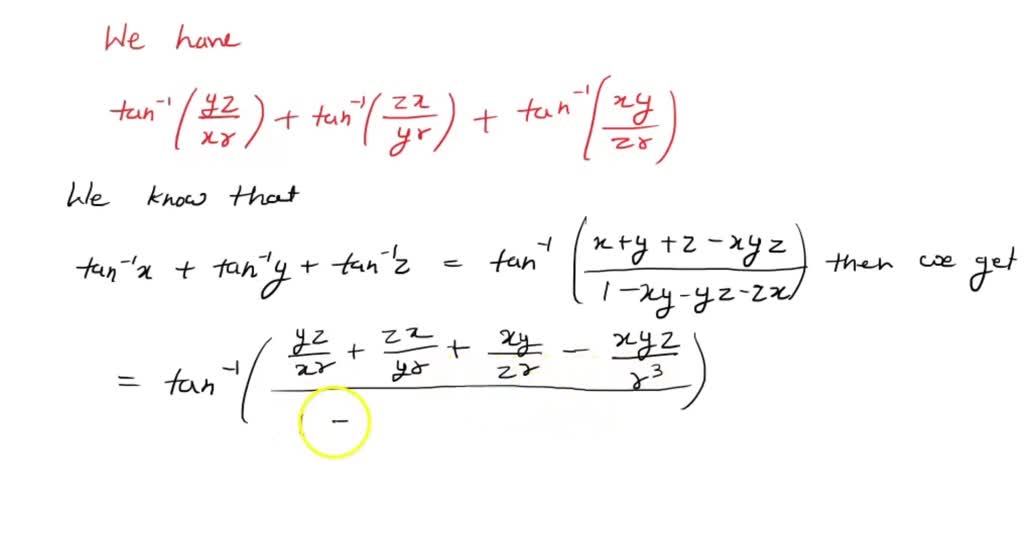 We have
tan⁻¹(yz/xr) + tan⁻¹(zx/yr) + tan⁻¹(xy/zr)
We know that
tan⁻¹x + tan⁻¹y + tan⁻¹z = tan⁻¹((x+y+z-xyz)/(1-xy-yz-zx)) then we get
= tan⁻¹((yz/xr + zx/yr + xy/zr - xyz/r³)/(1 -